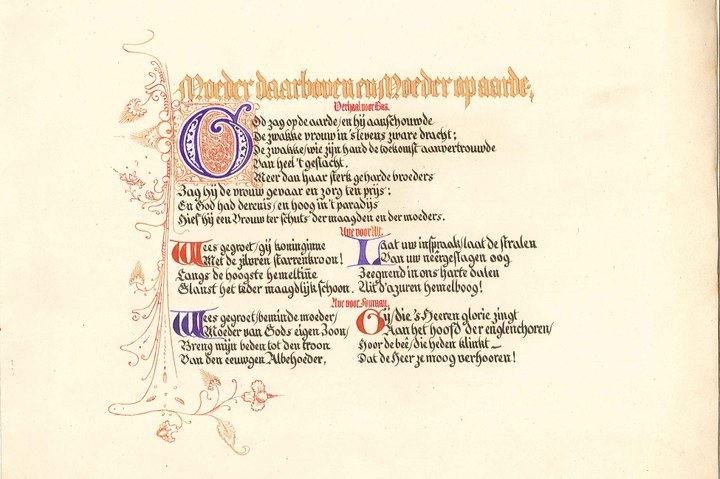 Moeder daarboven en Moeder op aarde,
Verhaal voor Bas.
God zag op de aarde/en hij aanschouwde
De zwakke vrouw in 's levens zware dracht;
De zwakke/wie zijn hand de toekomst aanvertrouwde
Van heel 't geslacht.
Meer dan haar sterk geharde broeders
Zag hij de vrouw gevaar en zorg ten prijs;
En God had derenis/en hoog in 't paradijs
Hief hij een Vrouw ter schuts der maagden en der moeders.
Ave voor Alt.
Wees gegroet/gij koninginne
Met de zilvren starrenkroon!
Langs de hoogste hemeltinne
Glanst het teder maagdlijk schoon.
Laat uw inspraak/laat de stralen
Van uw neêrgeslagen oog
Zeegnend in ons harte dalen
Uit d'azuren hemelboog!
Ave voor Sopraan.
Wees gegroet/beminde moeder/
Moeder van Gods eigen Zoon/
Breng mijn beden tot den troon
Van den eeuwgen Albehoeder,
Gij/die 's Heeren glorie zingt
Aan het hoofd der englenchoren/
Hoor de beê/die heden klinkt —
Dat de Heer ze moog verhooren!